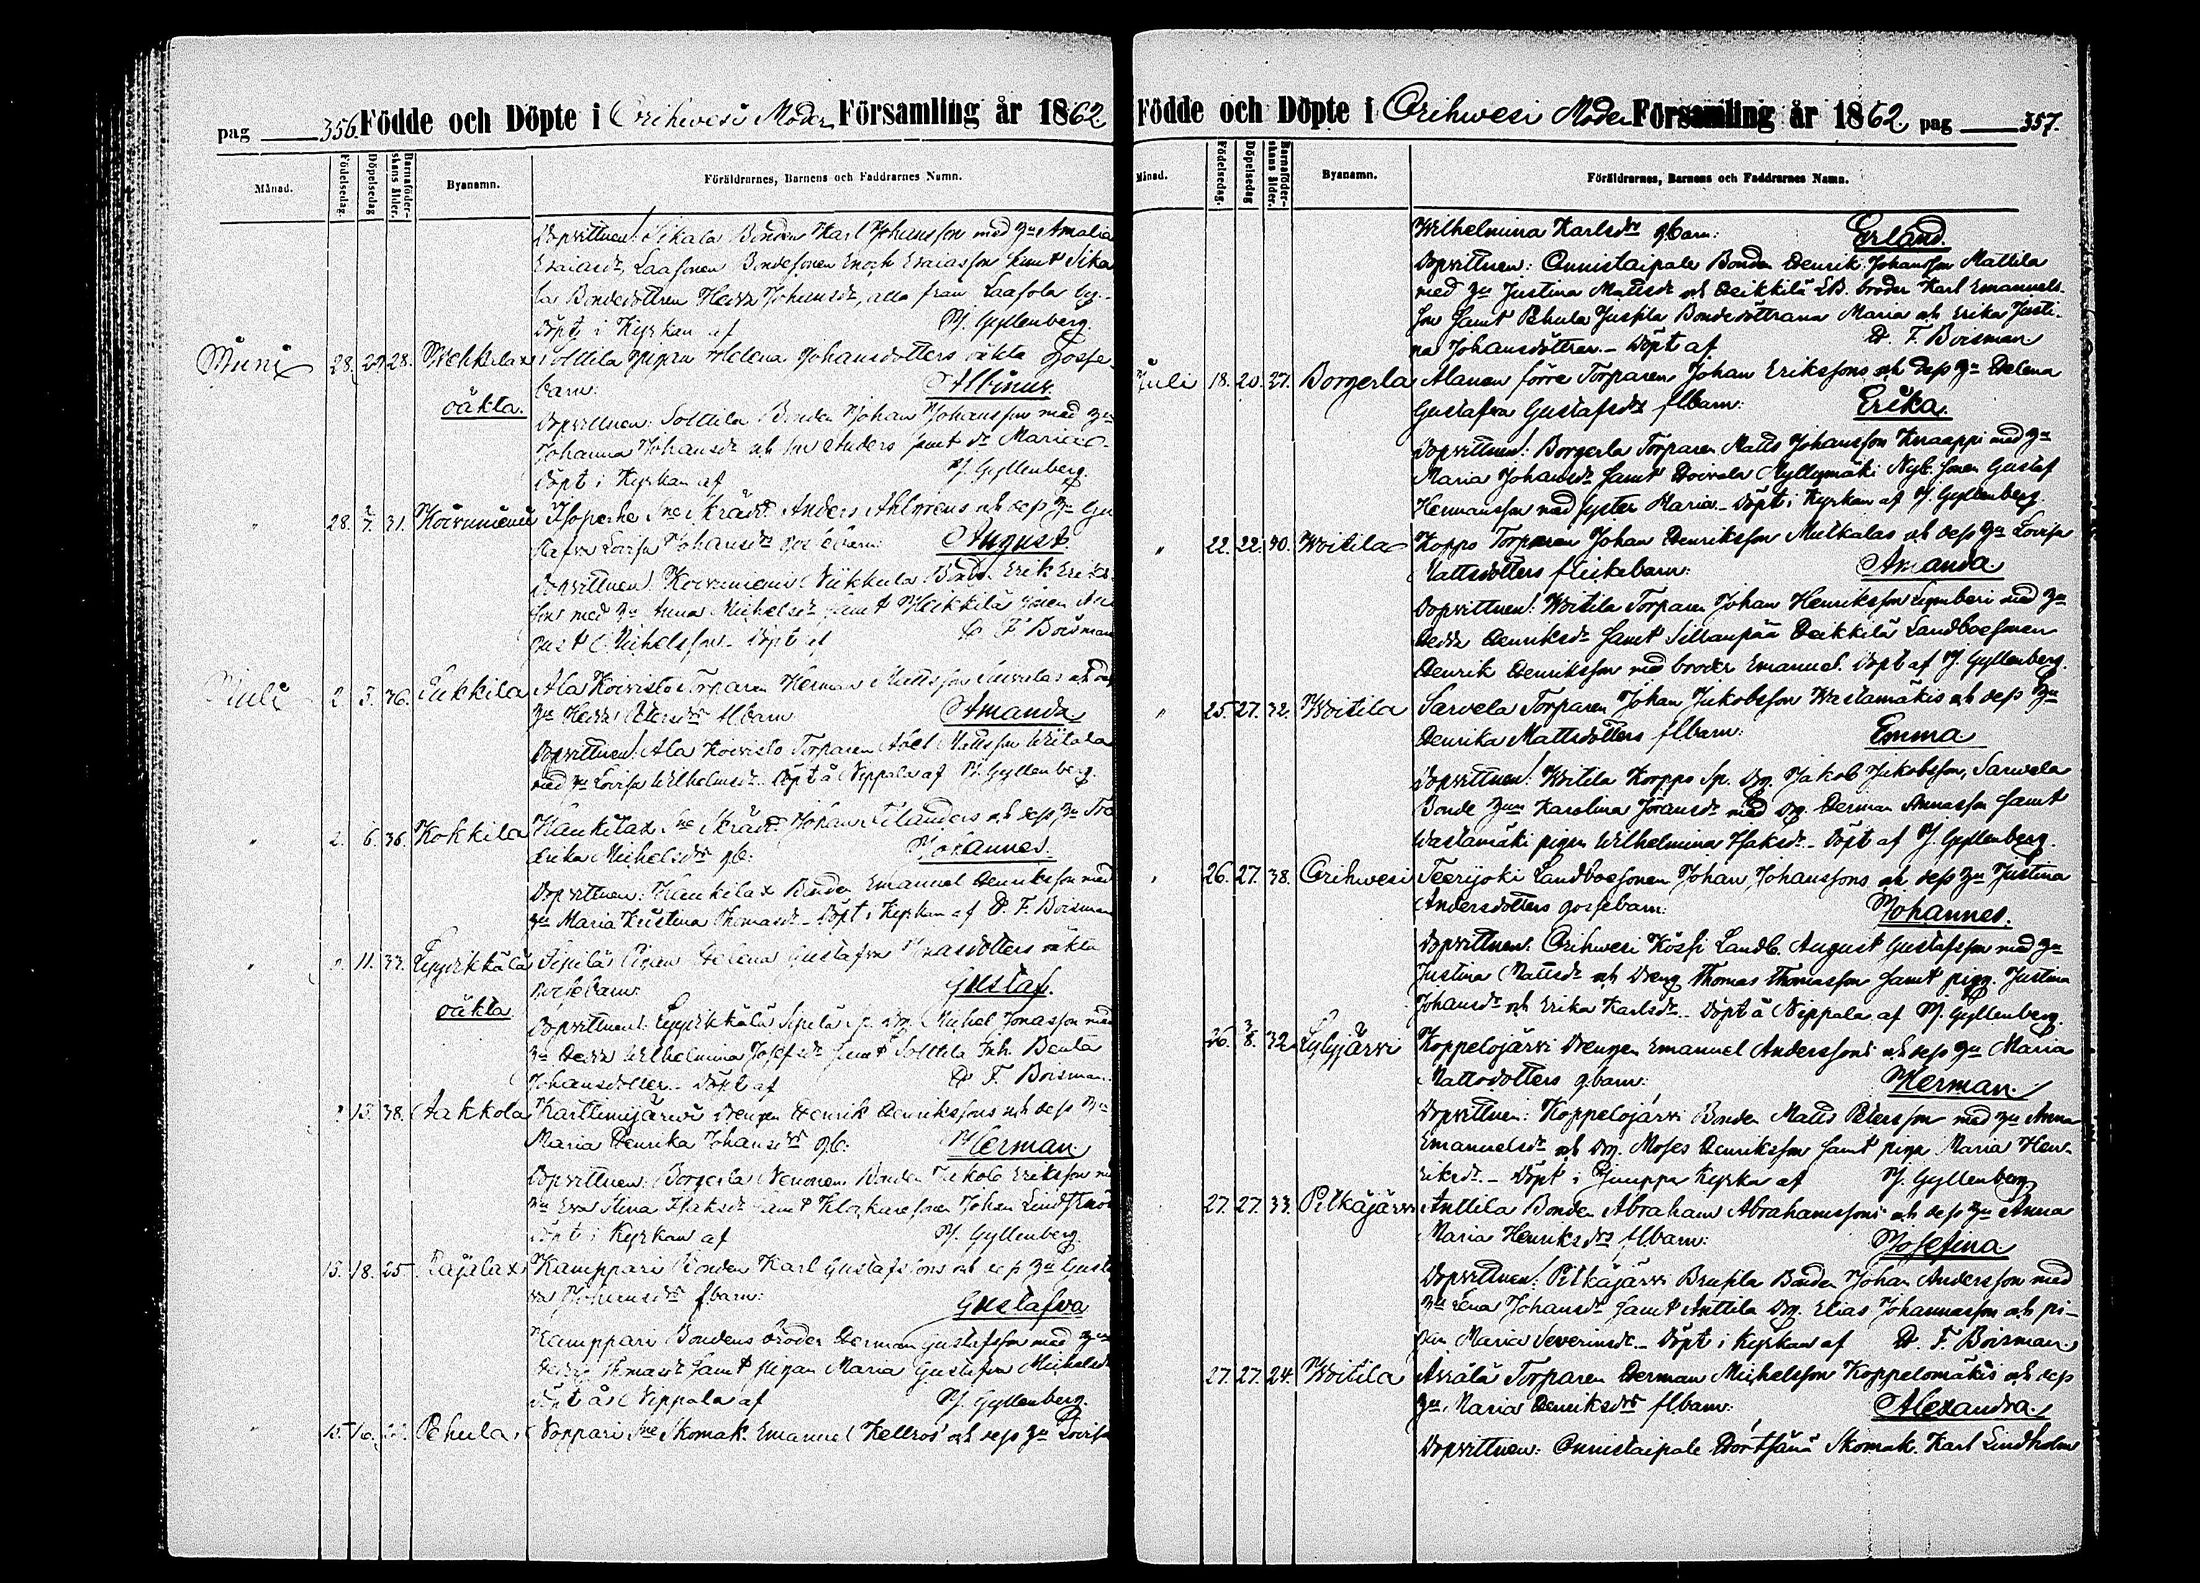 pag 356. Födde och Döpte i Orihwesi Moder Församling år 1862
Månad. Födelsedag. Döpelsedag Barnaföderskans ålder. Byanamn. Föräldrarnes, Barnens och Faddrarnes Namn.
Dopvittnen: Sikala Bonden Karl Johansson med hu Amalia
Esaiasdr, Laasonen Bondesonen Enoch Esaiasson samt Sika
la Bondedottren Hedda Johansdr, alla från Laasola by.
Döpt i Kyrkan af M. Gyllenberg.
Juni 28. 29. 28. Wehkalax Solttila pigan Helena Johansdotters oäkta gosse-
oäkta. barn: Albinus.
Dopvittnen: Solttila Bonden Johan Johansson med hu
Johanna Johansdr och son Anders samt dr Maria.
Döpt i Kyrkan af M. Gyllenberg.
" 28. 2/7. 31. Koivuniemi Isoperhe Sne Skrädd. Anders Ahlgrens och dess hu Gu
stafva Lovisa Johansdrs gossebarn: August.
Dopvittnen: Koivuniemi Niikkula Bonde Erik Eriks-
son med hu Anna Michelsdr samt Heikkilä sonen Au
gust Michelsson. Döpt af D. F. Boisman
Juli 2. 3. 36. Eukkila Ala Koivisto Torparen Herman Mattsson och dess
hu Hedda Petersdrs flbarn: Amanda
Dopvittnen: Ala Koivisto Torparen Abel Mattsson
med hu Lovisa Wilhelmsdr. Döpt å Nippala af M. Gyllenberg.
" 2. 6. 36. Kokkila Haukilax Sne Skrädd. Johan och dess hu Fre
derika Michelsdrs gb: Johannes.
Dopvittnen: Haukilax Bonden Emanuel Henriksson med
hu Maria Kristina Thomasdr. Döpt i Kyrkan af D. F. Boisman
" 11. 33. Eyyrikkälä Sipilä Pigan Helena Gustafva Jonasdotters oäkta
oäkta gossebarn: Gustaf.
Dopvittnen: Eyyrikkälä Sipilä Sp. Drg. Michel Jonasson med
hu Hedda Wilhelmina Josefsdr samt Solttila Inh. Beata
Johansdotter. Döpt af D. F. Boisman.
13. 38. Aakkola Karttimojärwi Drengen Henrik Henrikssons och dess hu
Maria Henrika Johansdrs gb: Herman.
Dopvittnen: Borgerla Nenonen Bonden Jakob Eriksson med
hu Eva Stina Isaksdr samt Klockaresonen Johan Lindström
Döpt i Kyrkan af M. Gyllenberg.
15. 18. 25 Rajalax Kamppari Bonden Karl Gustafssons och dess hu Gusta
va Johansdrs flbarn: Gustafva
Kamppari Bondens broder Herman Gustafsson med hu
Hedda Thomasdr samt pigan Maria Gustafva Michelsdr
Döpt å Nippala af M. Gyllenberg.
15. 16. Pehula Noppari Sne Skomak. Emanuel Hellros och dess hu Lovisa
Födde och Döpte i Orihwesi Moder Församling år 1862. pag 357.
Månad. Födelsedag. Döpelsedag Barnaföderskans ålder. Byanamn. Föräldrarnes, Barnens och Faddrarnes Namn.
Wilhelmina Karlsdrs gbarn: Erland.
Dopvittnen: Onnistaipale Bonden Henrik Johansson Mattila
med hu Justina Mattsdr och Heikkilä LB. broder Karl Emanuels-
son samt Pehula Jussila Bondedöttrarna Maria och Erika Justi-
na Johansdöttrar. Döpt af D. F. Boisman
Juli 18. 20. 27. Borgerla Alanen förre Torparen Johan Erikssons och dess hu Helena
Gustafva Gustafsdrs flbarn: Erika.
Dopvittnen: Borgerla Torparen Matts Johansson Knaappi med hu
Maria Johansdr samt Hoivala Myllymäki Nyb. sonen Gustaf
Hermansson med syster Maria. Döpt i Kyrkan af M. Gyllenberg
" 22. 22. 40. Woitila Koppo Torparen Johan Henriksson Mutkalas och dess hu Lovisa
Mattsdotters flickebarn: Amanda
Dopvittnen: Woitila Torparen Johan Henriksson med hu
Hedda Henriksdr samt Sillanpää Heikkilä Landboesonen
Henrik Henriksson med broder Emanuel. Döpt af M. Gyllenberg.
" 25. 27. 32. Woitila Sarvela Torparen Johan Jakobsson Wastamäkis och dess hu
Henrika Mattsdotters flbarn: Emma
Dopvittnen: Woitila Korppo Sp. Drg. Jakob Jakobsson, Sarvela
Bonde hun Karolina Göransdr med Drg. Herman Annasson samt
Wastamäki pigan Wilhelmina Isaksdr. Döpt af M. Gyllenberg.
" 26. 27. 38. Orihwesi Teerijoki Landboesonen Johan Johanssons och dess hu Justina
Andersdotters gossebarn: Johannes.
Dopvittnen: Orihwesi Kössi Landb. August Gustafsson med hu
Justina Mattsdr och Dreng Thomas Thomasson samt pigg. Justina
Johansdr och Erika Karlsdr. Döpt å Nippala af M. Gyllenberg.
26. 3/8. 32. Lylyjärvi Koppelojärvi Drengen Emanuel Anderssons och dess hu Maria
Mattsdotters gbarn: Herman.
Dopvittnen: Koppelojärvi Bonden Matts Petersson med hu Anna
Emanuelsdr och Drg. Moses Henriksson samt pigan Maria Hen-
riksdr. Döpt i Juuppa Kyrka af M. Gyllenberg
27. 27. 33. Pitkäjärvi Anttila Bonden Abraham Abrahamssons och dess hu Anna
Maria Henriksdrs flbarn: Josefina
Dopvittnen: Pitkäjärvi Brusila Bonden Johan Andersson med
hu Lena Johansdr samt Anttila Drg. Elias Johannasson och pi-
gan Maria Severinsdr. Döpt i Kyrkan af D. F. Boisman.
27. 27. 24. Woitila Assälä Torparen Herman Michelsson Koppelomäkis och dess
hu Maria Henriksdrs flbarn: Alexandra.
Dopvittnen: Onnistaipale Skomak. Karl Lindholm